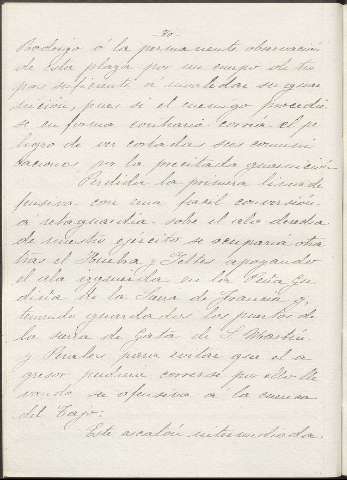 70
Rodrigo ó la permanente observación
de esta plaza por un cuerpo de tro
pas suficiente á invalidar su guar
nición, pues si el enemigo procedie
se en forma contraria corria el pe
ligro de ver cortadas sus comuni
caciones por la precitada guarnición
Perdida la primera linea de
fensiva con una facil conversión
á retaguardia sobre el ala derecha
de nuestro ejército se ocuparia otra
tras el Huebra y Yeltes apoyando
el ala izquierda en la Peña Gu
dina de la Sierra de Francia y,
teniendo guardados los puertos de
la sierra de Gata de S. Martín
y Perales para evitar que el a
gresor pudiera correrse por ellos lle
vando su ofensiva a la cuenca
del Tajo.
Este escalón intermedio da